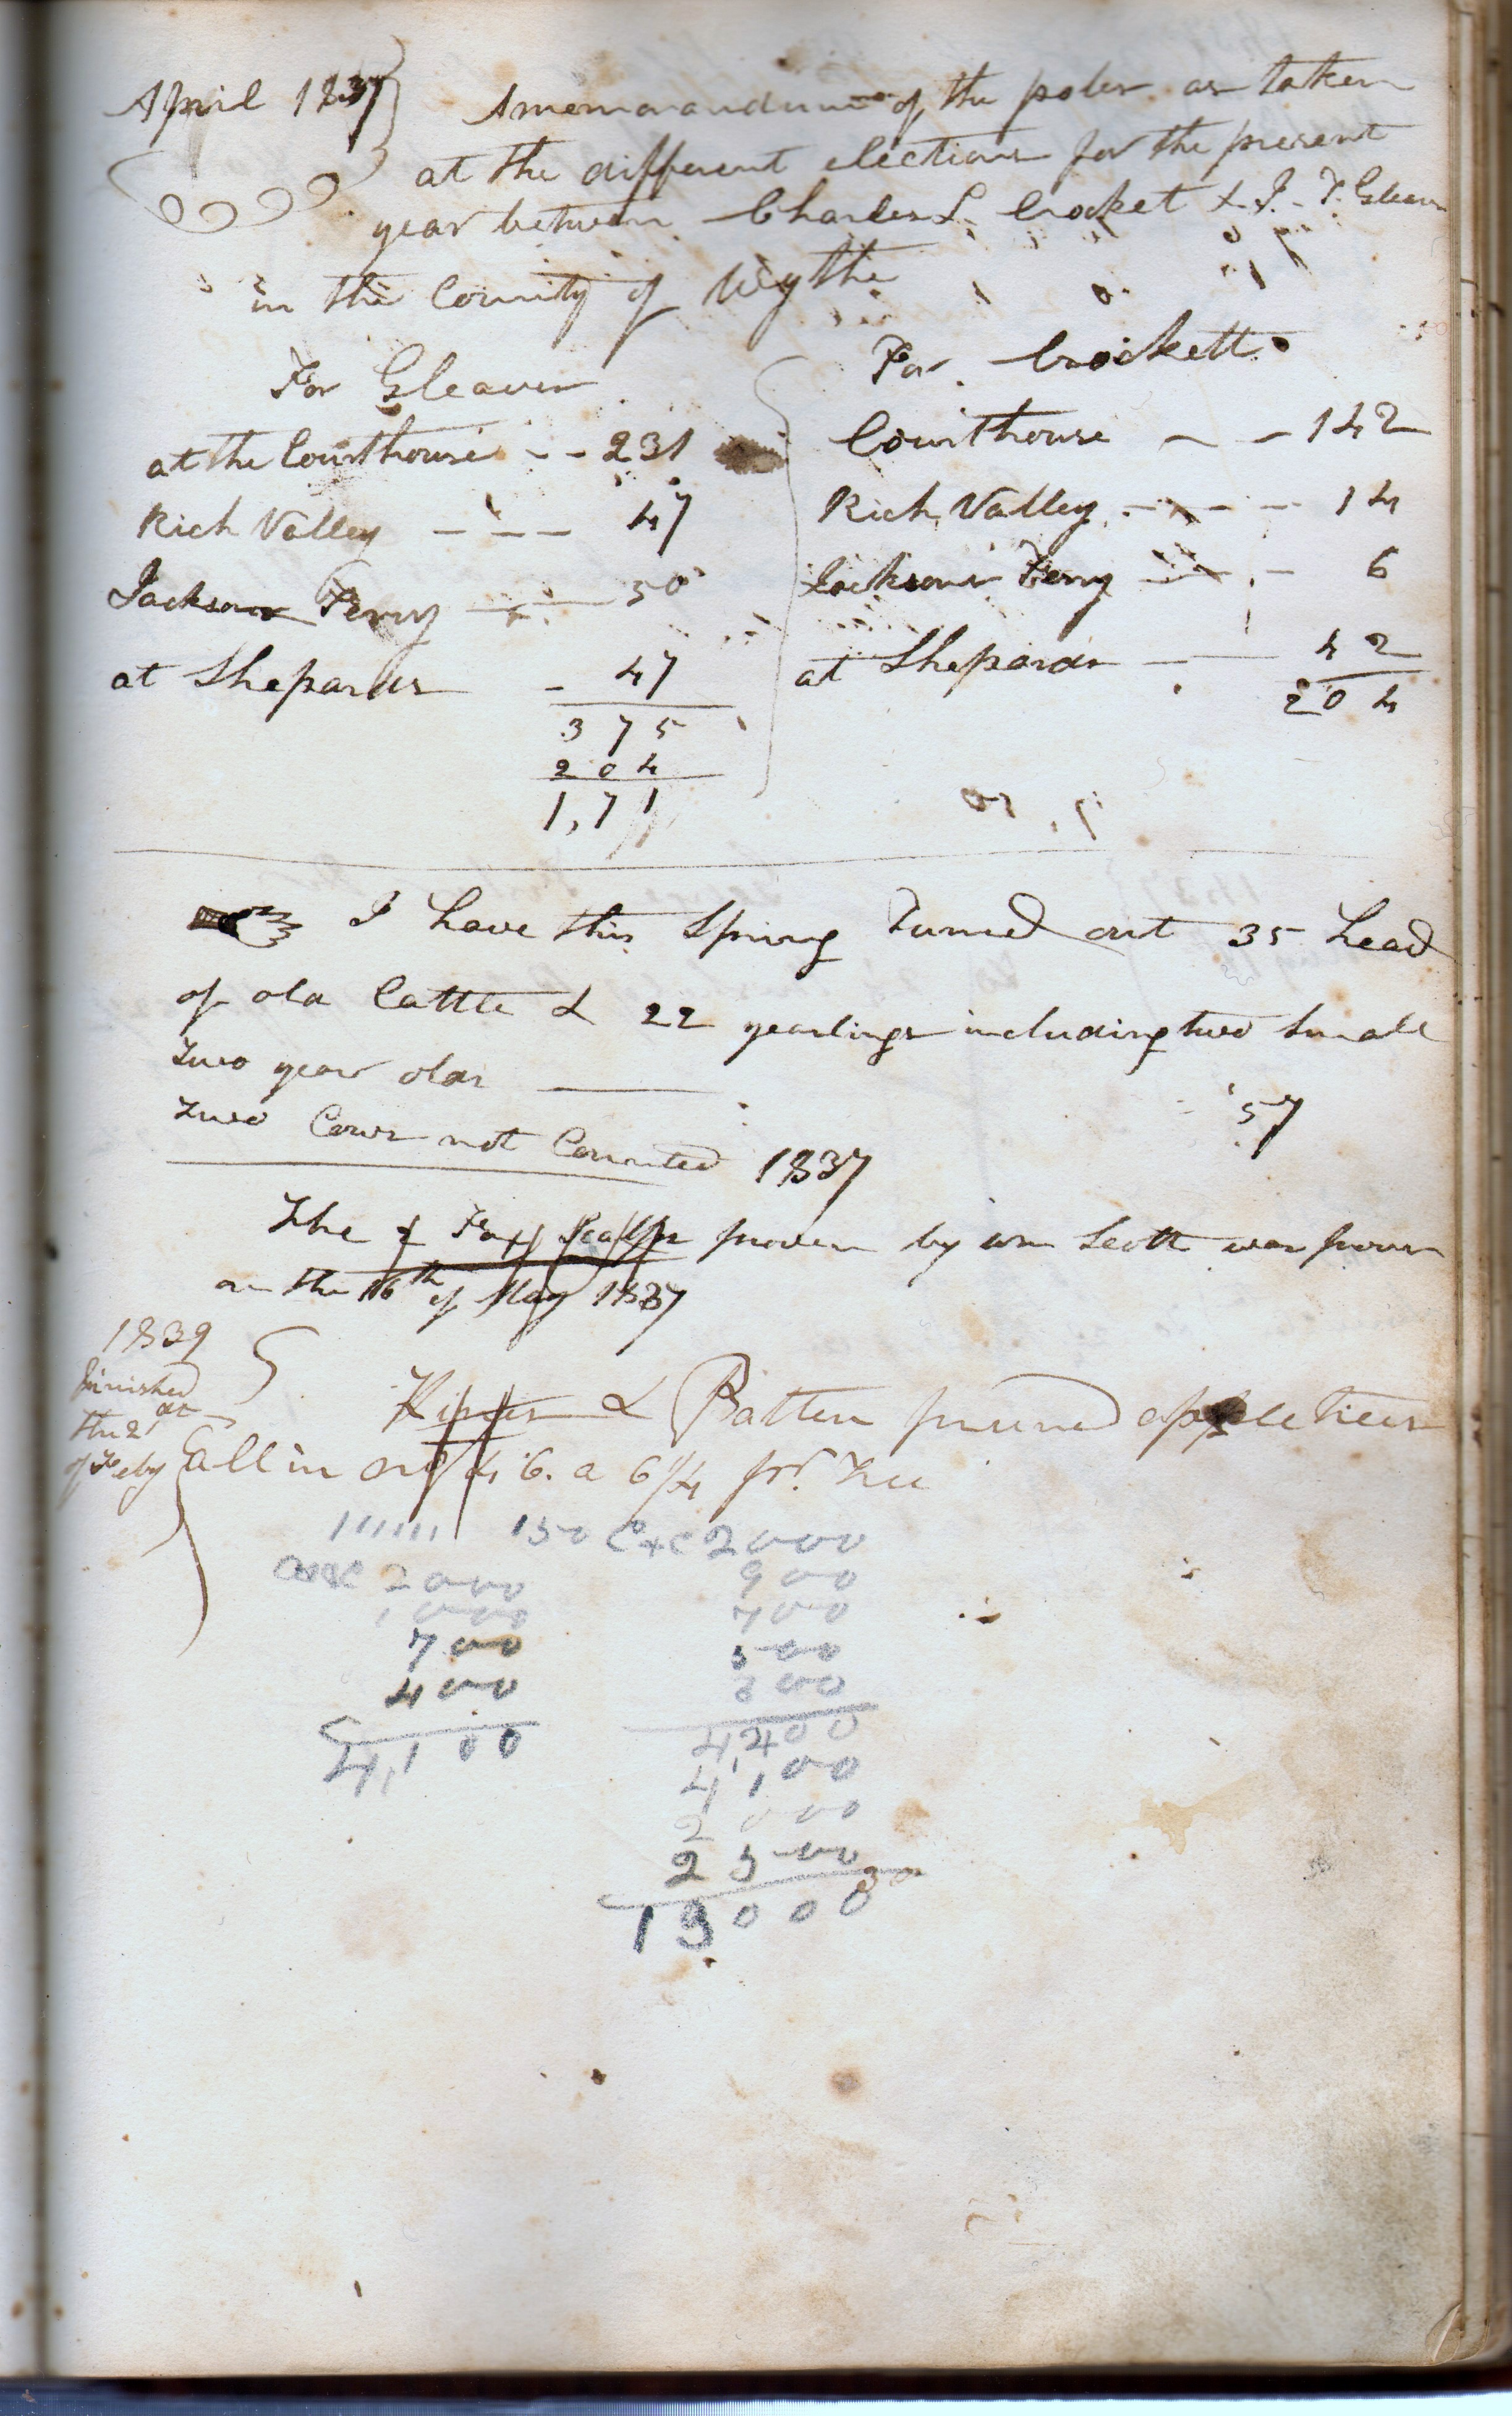 April 1837 A memorandum of the poles as taken
at the different elections for the present
year between Charles L. Crocket & J. T. Gleaves
in the County of Wythe
For Gleaves
at the Courthouse -- 231
Rich Valley --- 47
Jacksons Ferry --- 50
at Shepards - 47
375
204
1,71
For Crockett
Courthouse -- 142
Rich Valley ---- 14
Jacksons Ferry --- 6
at Shepards -- 42
204
I have this Spring Turned out 35 head
of old Cattle & 22 yearlings including two Small
Two year olds ——
57
Two Cows not Counted 1837
The Fox Scalps proven by Wm Scott was proven
on the 16th of May 1837
1839
finished
at
the 2
of Feby
& Batten pruned apple trees
all in 46. a 6/4 pr. Tree
111111 150 C+C 2000
2000
1000
700
400
4,100
900
700
500
300
4,400
4,100
2000
2500
30
13000